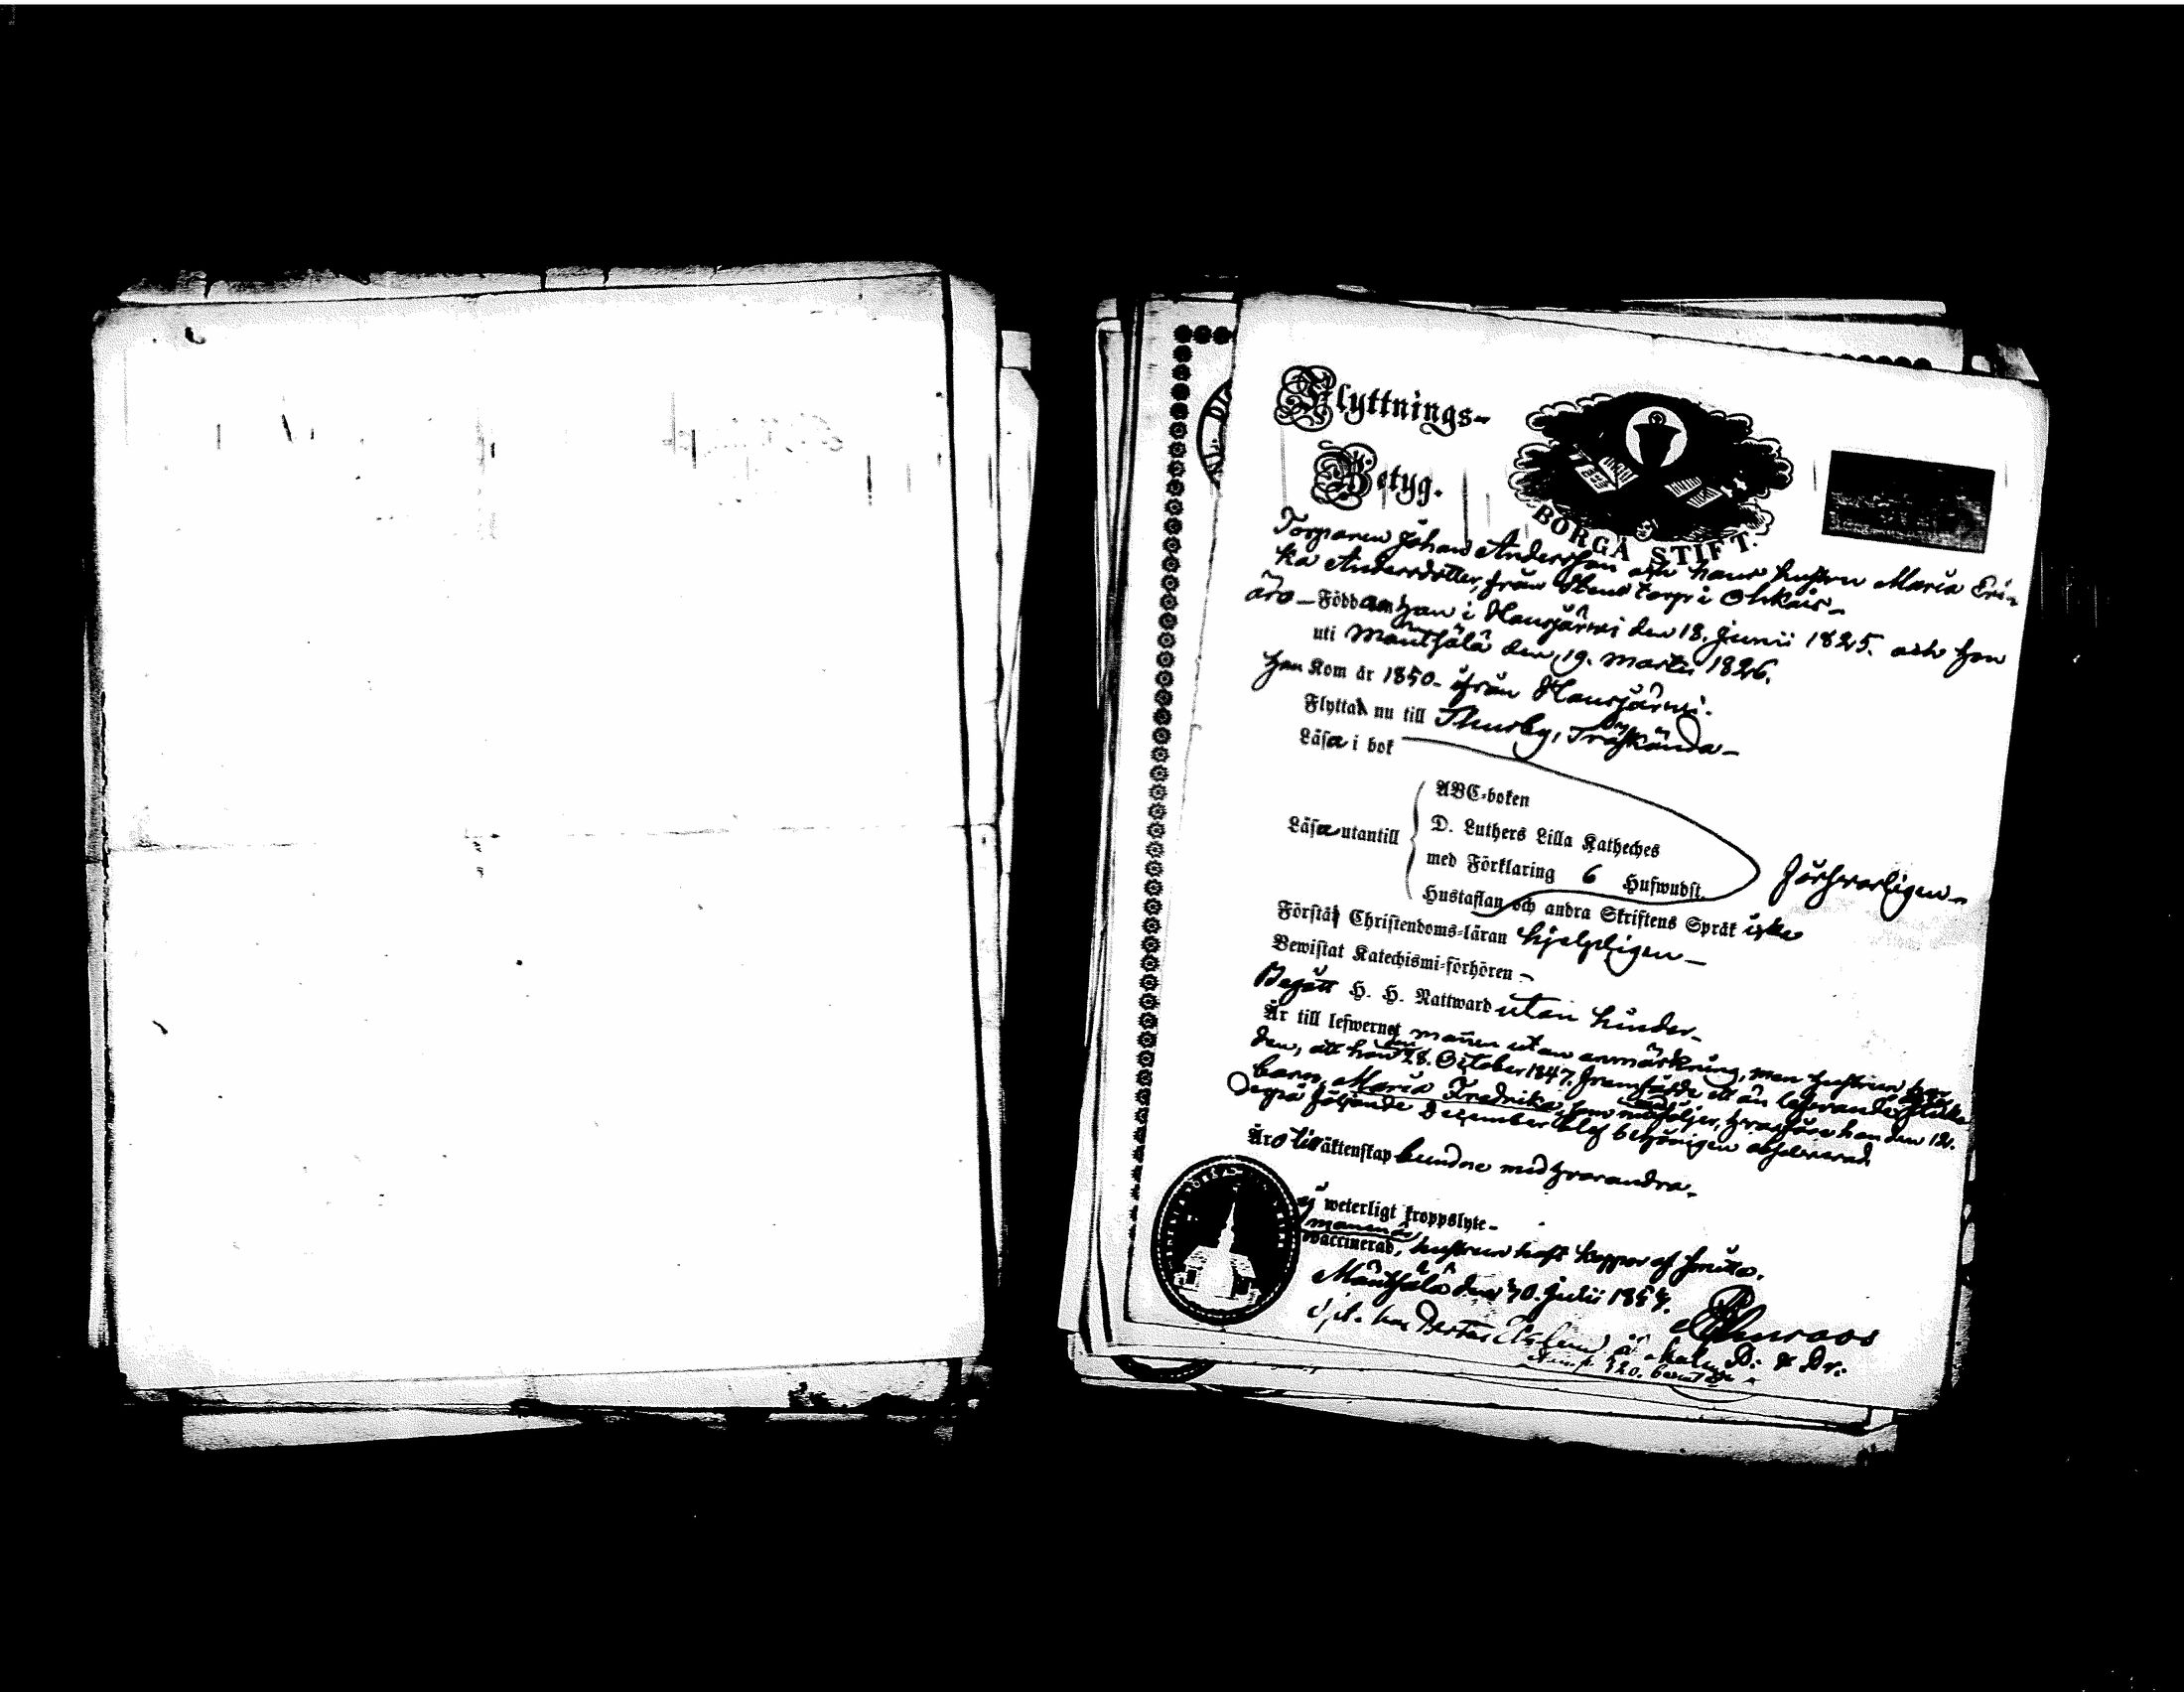 Flyttnings-
Betyg.
BORGÅ STIFT.
Torparen Johan Andersson och hans hustru Maria Eri-
ka Andersdotter, från Stens torp i Ohkais-
äro - Född han i Hausjärvi den 18. Junii 1825. och hon
uti Mäntsälä den 19. Martii 1826.
han Kom år 1850- ifrån Hausjärvi.
Flytta nu till Thusby, Träskända-
Läsa i bok
ABC-boken
Läsa utantill D. Luthers Lilla Katheches
med Förklaring 6 Hufwudst.
försvarligen-
Hustaflan och andra Skriftens Språk icke
Förstå Christendoms-läran hjelpligen-
Bewistat Katechismi-förhören -
Begått H. H. Nattward utan hinder-
Är till lefwernet mannen utan anmärkning, men hustrun har
den, att hon 28. October 1847. framfödde ett än lefvande
barn, Maria Fredrika, som medföljer, hvarföre hon den 12.
derpå följande December blef behörigen absolverad.
Äro till äktenskap bundne med hvarandra-
ej weterligt kroppslyte-
mannen är
vaccinerad, hustrun haft koppor
Mäntsälä den 30. Julii